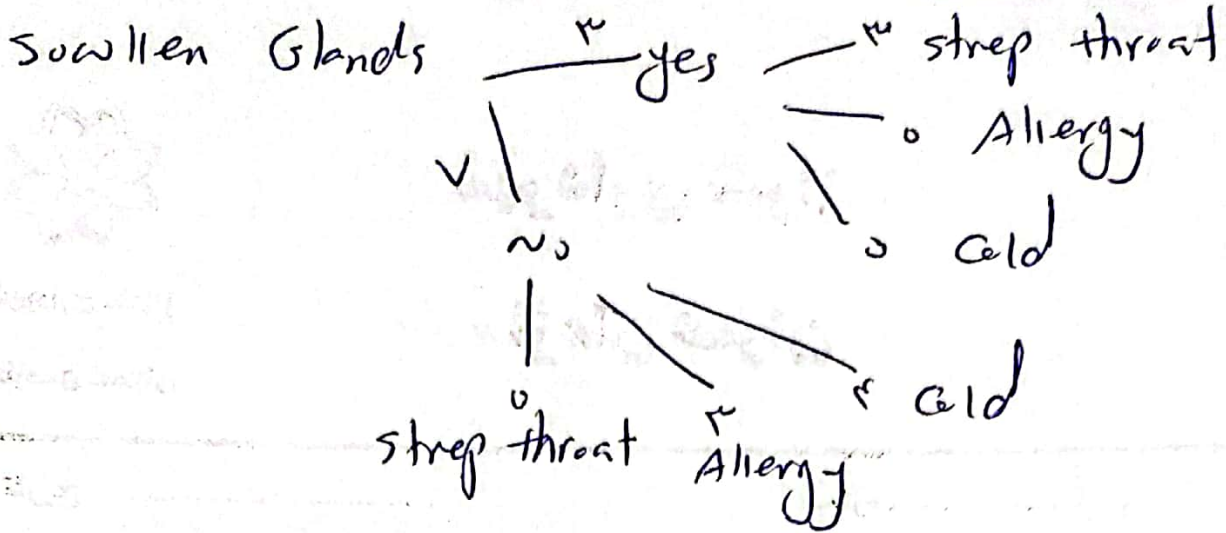 Swollen Glands ۳ yes ۳ strep throat
0 Allergy
۷
No 0 Cold
0 ۳ ۴ Cold
strep throat Allergy